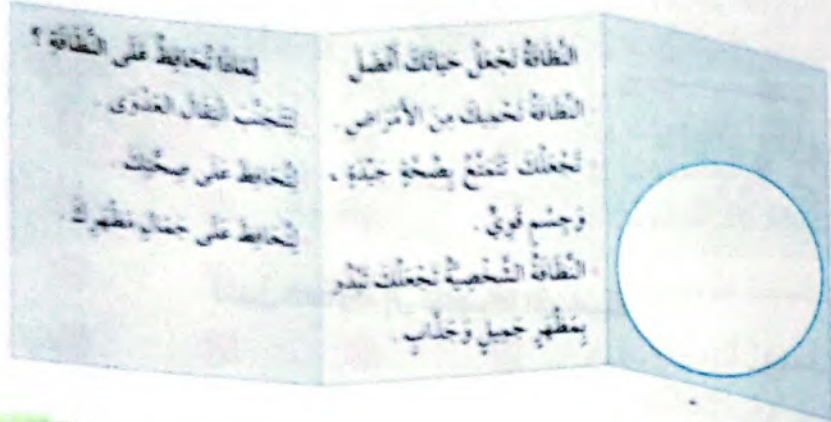 النَّظَافَةُ تَجْعَلُ حَيَاتَكَ أَفْضَلَ
النَّظَافَةُ تَحْمِيكَ مِنَ الأَمْرَاضِ .
تَجْعَلُكَ تَتَمَتَّعُ بِصِحَّةٍ جَيِّدَةٍ ،
وَجِسْمٍ قَوِيٍّ .
النَّظَافَةُ الشَّخْصِيَّةُ تَجْعَلُكَ تَبْدُو
بِمَظْهَرٍ جَمِيلٍ وَجَذَّابٍ .
لِمَاذَا تُحَافِظُ عَلَى النَّظَافَةِ ؟
لِتَتَجَنَّبَ انْتِقَالَ العَدْوَى .
لِتُحَافِظَ عَلَى صِحَّتِكَ .
لِتُحَافِظَ عَلَى جَمَالِ مَظْهَرِكَ .